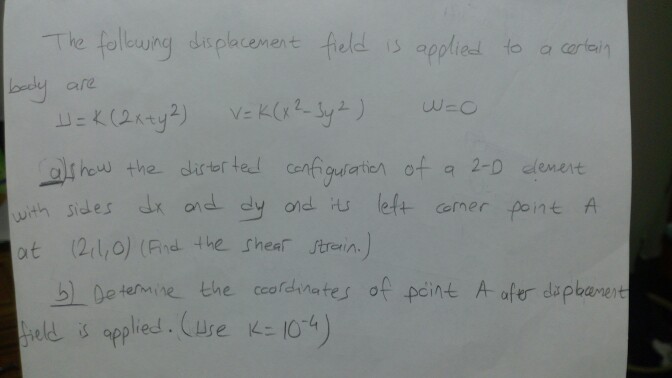 The following displacement field is applied to a certain
body are
U = K(2x+y²) V = K(x²-3y²) W=0
a) Show the distorted configuration of a 2-D element
with sides dx and dy and its left corner point A
at (2,1,0) (Find the shear strain.)
b) Determine the coordinates of point A after displacement
field is applied. (Use K = 10⁻⁴)